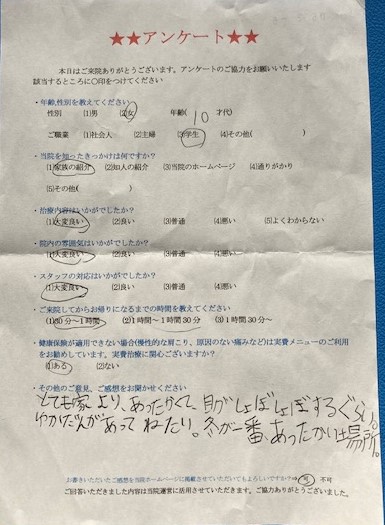 ★★アンケート★★
本日はご来院ありがとうございます。アンケートのご協力をお願いいたします
該当するところに○印をつけてください
・年齢,性別を教えてください
性別 (1)男 (2)女 年齢( 10 才代)
ご職業 (1)社会人 (2)主婦 (3)学生 (4)その他( )
・当院を知ったきっかけは何ですか?
(1)家族の紹介 (2)知人の紹介 (3)当院のホームページ (4)通りがかり
(5)その他( )
・治療内容はいかがでしたか?
(1)大変良い (2)良い (3)普通 (4)悪い (5)よくわからない
・院内の雰囲気はいかがでしたか?
(1)大変良い (2)良い (3)普通 (4)悪い
・スタッフの対応はいかがでしたか?
(1)大変良い (2)良い (3)普通 (4)悪い
・ご来院してからお帰りになるまでの時間を教えてください
(1)30分～1時間 (2)1時間～1時間30分 (3)1時間30分～
・健康保険が適用できない場合(慢性的な肩こり、原因のない痛みなど)は実費メニューのご利用
をお勧めしています。実費治療に関心ございますか?
(1)ある (2)ない
・その他のご意見、ご感想をお聞かせください
とても家より、あったかくて、目がしょぼしょぼするぐらい。
ゆかだんがあってねたり。冬が一番、あったかい場所。
上書きいただいたご感想を当院ホームページに掲載させていただいてもよろしいですか?⇒ 可 不可
ご回答いただきました内容は当院運営に活用させていただきます。ご協力ありがとうございました。